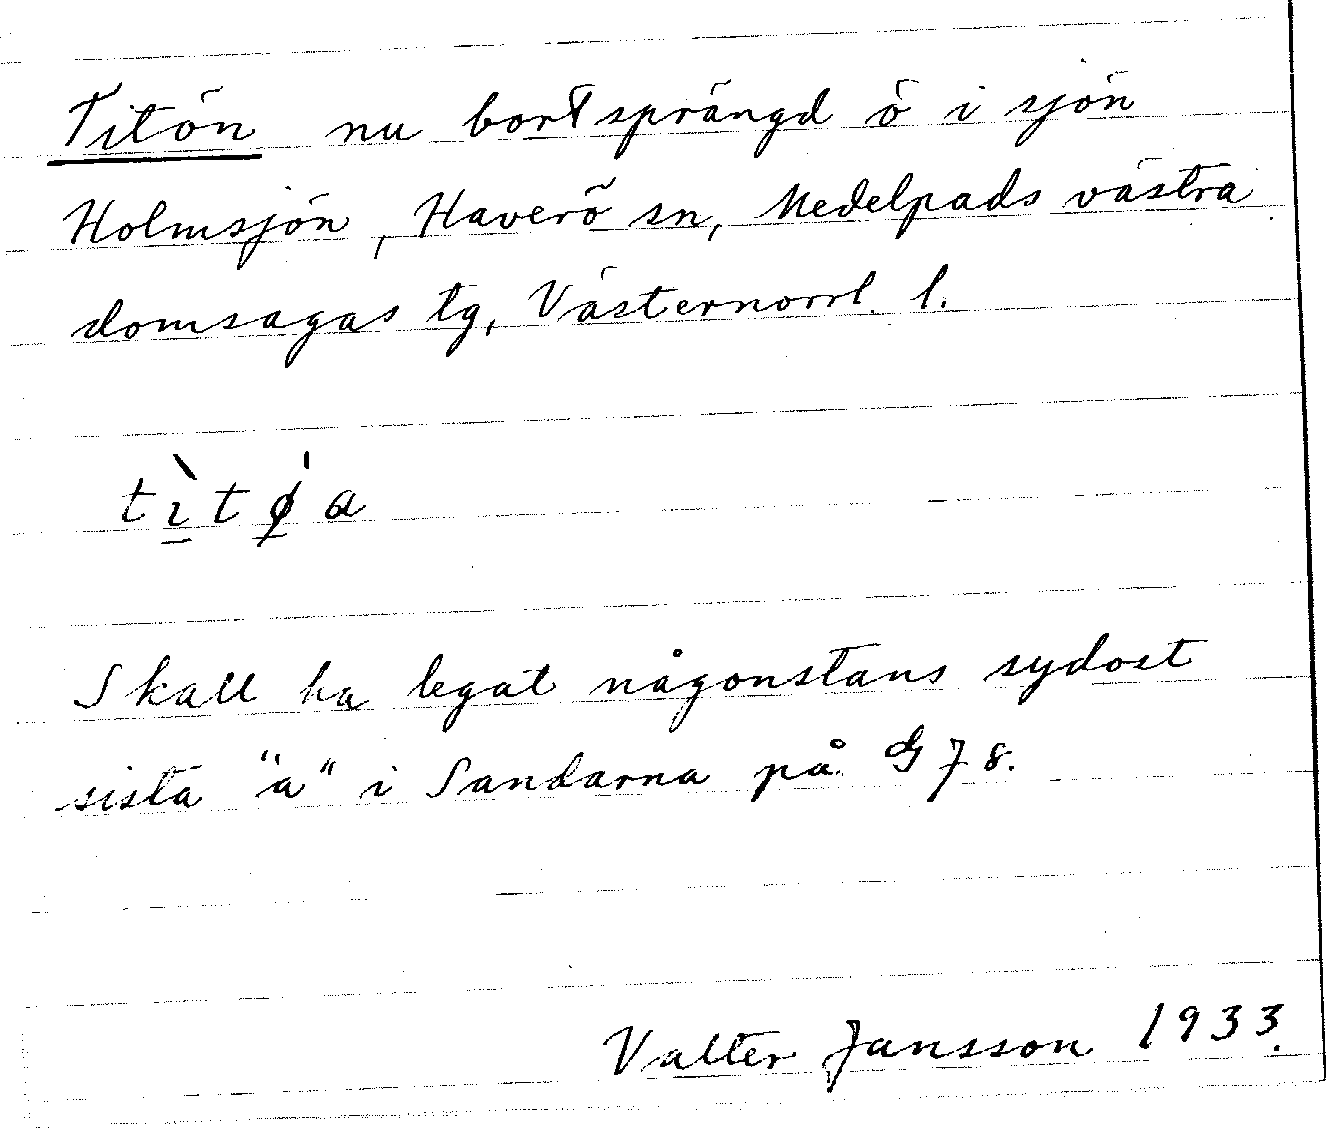 Titön nu bortsprängd ö i sjön
Holmsjön, Haverö sn, Medelpads västra
domsagas tg, Västernorrl. l.
tı̖̀tǿ̖a
Skall ha legat någonstans sydost
sista "a" i Sandarna på G 78.
Valter Jansson 1933.